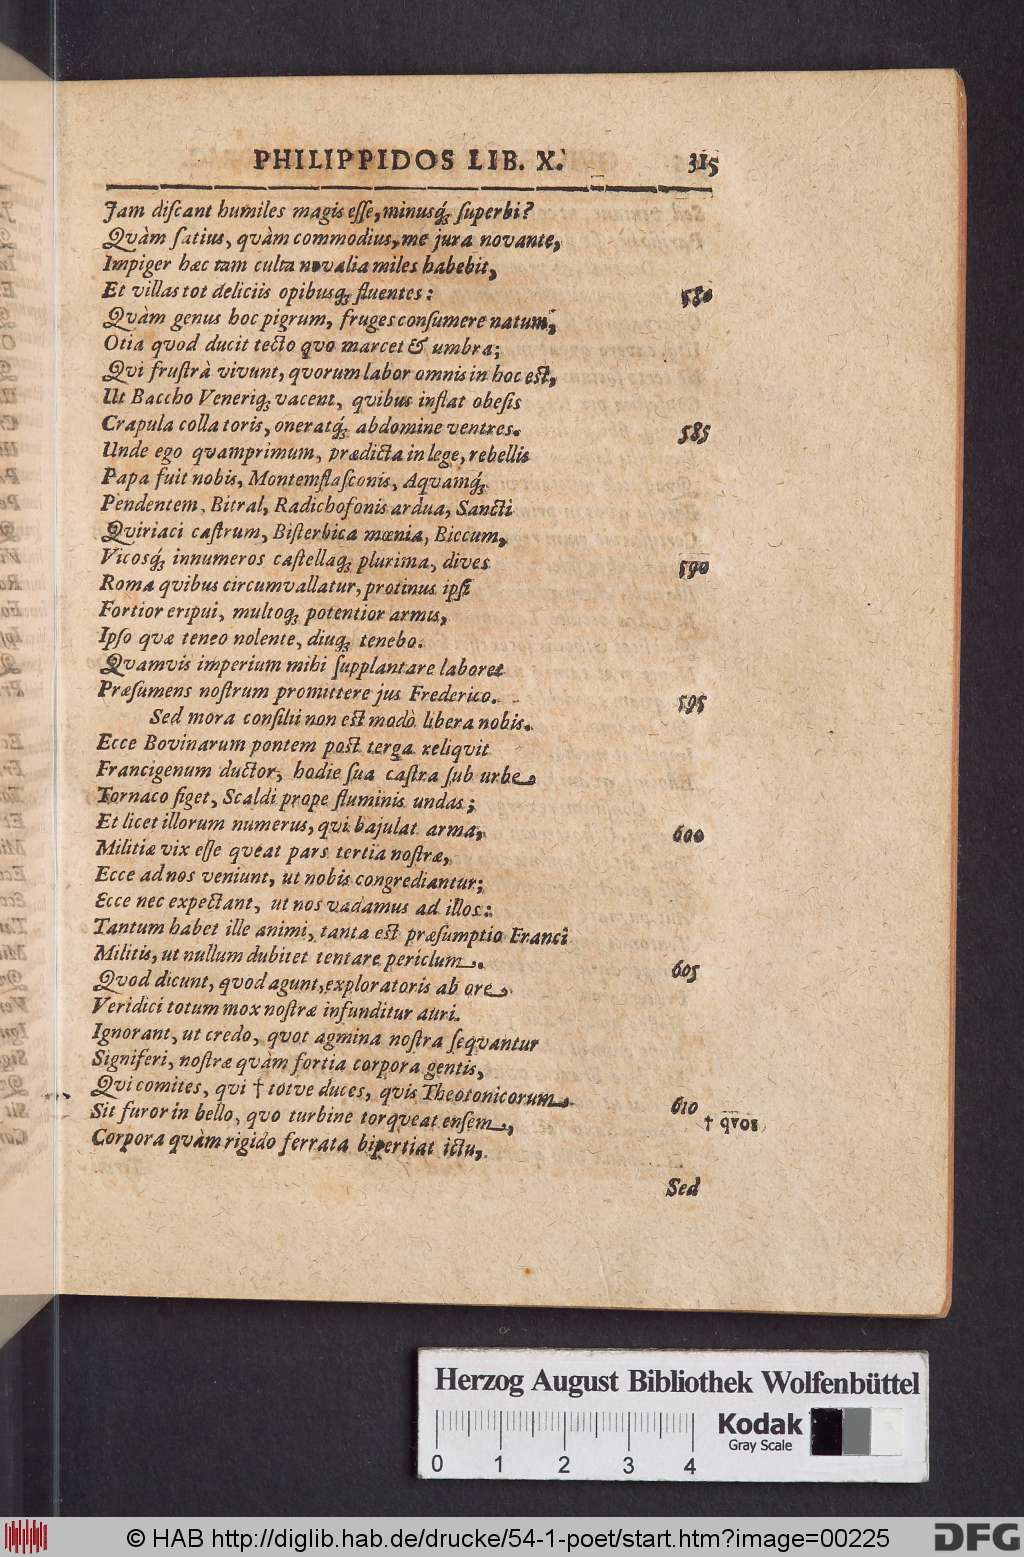 PHILIPPIDOS LIB. X. 315
Jam diſcant humiles magis eſſe, minusq́; ſuperbi?
Qvàm ſatius, qvàm commodius, me jura novante,
Impiger hæc tam culta novalia miles habebit,
Et villas tot deliciis opibusq; fluentes: 580
Qvàm genus hoc pigrum, fruges conſumere natum,
Otia qvod ducit tecto qvo marcet & umbra;
Qvi fruſtrà vivunt, qvorum labor omnis in hoc eſt,
Ut Baccho Veneriq; vacent, qvibus inflat obeſis
Crapula colla toris, oneratq́; abdomine ventres. 585
Unde ego qvamprimum, prædicta in lege, rebellis
Papa fuit nobis, Montemflaſconis, Aqvamq́;
Pendentem, Bitral, Radichofonis ardua, Sancti
Qviriaci caſtrum, Biſterbica mœnia, Biccum,
Vicosq́; innumeros caſtellaq; plurima, dives 590
Roma qvibus circumvallatur, protinus ipſi
Fortior eripui, multoq; potentior armis,
Ipſo qvæ teneo nolente, diuq; tenebo.
Qvamvis imperium mihi ſupplantare laboret
Præſumens noſtrum promittere jus Frederico. 595
Sed mora conſilii non eſt modò libera nobis.
Ecce Bovinarum pontem poſt terga reliqvit
Francigenum ductor, hodie ſua caſtra ſub urbe
Tornaco figet, Scaldi prope fluminis undas;
Et licet illorum numerus, qvi bajulat arma, 600
Militiæ vix eſſe qveat pars tertia noſtræ,
Ecce ad nos veniunt, ut nobis congrediantur;
Ecce nec expectant, ut nos vadamus ad illos:
Tantum habet ille animi, tanta eſt præſumptio Franci
Militis, ut nullum dubitet tentare periclum. 605
Qvod dicunt, qvod agunt, exploratoris ab ore
Veridici totum mox noſtræ infunditur auri.
Ignorant, ut credo, qvot agmina noſtra ſeqvantur
Signiferi, noſtræ qvàm fortia corpora gentis,
Qvi comites, qvi † totve duces, qvis Theotonicorum 610
Sit furor in bello, qvo turbine torqveat enſem, † qvos
Corpora qvàm rigido ferrata bipertiat ictu,
Sed
Herzog August Bibliothek Wolfenbüttel
Kodak
Gray Scale
0 1 2 3 4
© HAB http://diglib.hab.de/drucke/54-1-poet/start.htm?image=00225
DFG